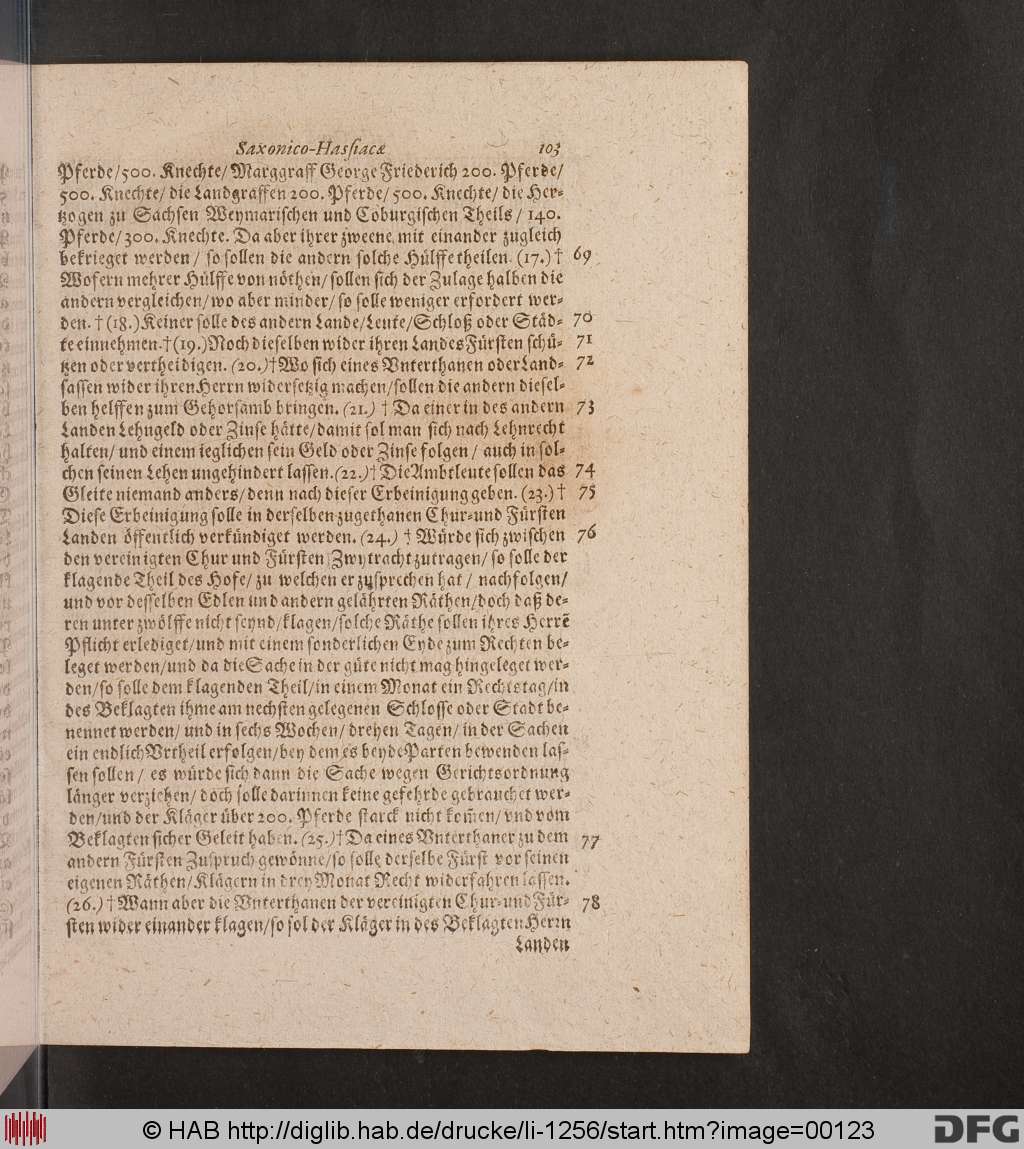 Saxonico-Hassiacæ 103
Pferde/500. Knechte/ Marggraff George Friederich 200. Pferde/
500. Knechte/ die Landgraffen 200. Pferde/ 500. Knechte/ die Her-
tzogen zu Sachsen Weymarischen und Coburgischen Theils/ 140.
Pferde/300. Knechte. Da aber ihrer zweene mit einander zugleich
bekrieget werden/ so sollen die andern solche Hülffe theilen. (17.) † 69
Wofern mehrer Hülffe von nöthen/ sollen sich der Zulage halben die
andern vergleichen/ wo aber minder/ so solle weniger erfordert wer-
den. † (18.) Keiner solle des andern Lande/Leute/Schloß oder Städ- 70
te einnehmen. † (19.) Noch dieselben wider ihren LandesFürsten schü- 71
tzen oder vertheidigen. (20.) † Wo sich eines Vnterthanen oder Land- 72
sassen wider ihren Herrn widersetzig machen/sollen die andern diesel-
ben helffen zum Gehorsamb bringen. (21.) † Da einer in des andern 73
Landen Lehngeld oder Zinse hätte/damit sol man sich nach Lehnrecht
halten/ und einem ieglichen sein Geld oder Zinse folgen/ auch in sol-
chen seinen Lehen ungehindert lassen. (22.) † Die Ambtleute sollen das 74
Gleite niemand anders/ denn nach dieser Erbeinigung geben. (23.) † 75
Diese Erbeinigung solle in derselben zugethanen Chur- und Fürsten
Landen öffentlich verkündiget werden. (24.) † Würde sich zwischen 76
den vereinigten Chur und Fürsten Zwytracht zutragen/ so solle der
klagende Theil des Hofe/ zu welchen er zusprechen hat/ nachfolgen/
und vor desselben Edlen und andern gelährten Räthen/doch daß de-
ren unter zwölffe nicht seynd/klagen/solche Räthe sollen ihres Herrē
Pflicht erlediget/und mit einem sonderlichen Eyde zum Rechten be-
leget werden/und da die Sache in der güte nicht mag hingeleget wer-
den/so solle dem klagenden Theil/in einem Monat ein Rechtstag/in
des Beklagten ihme am nechsten gelegenen Schlosse oder Stadt be-
nennet werden/ und in sechs Wochen/ dreyen Tagen/ in der Sachen
ein endlich Vrtheil erfolgen/bey dem es beyde Parten bewenden las-
sen sollen/ es würde sich dann die Sache wegen Gerichtsordnung
länger verziehen/ doch solle darinnen keine gefehrde gebrauchet wer-
den/und der Kläger über 200. Pferde starck nicht kom̄en/ vnd vom
Beklagten sicher Geleit haben. (25.) † Da eines Vnterthaner zu dem 77
andern Fürsten Zuspruch gewönne/so solle derselbe Fürst vor seinen
eigenen Räthen/Klägern in drey Monat Recht widerfahren lassen.
(26.) † Wann aber die Vnterthanen der vereinigten Chur- und Für- 78
sten wider einander klagen/so sol der Kläger in des Beklagten Herrn
Landen
© HAB http://diglib.hab.de/drucke/li-1256/start.htm?image=00123
DFG